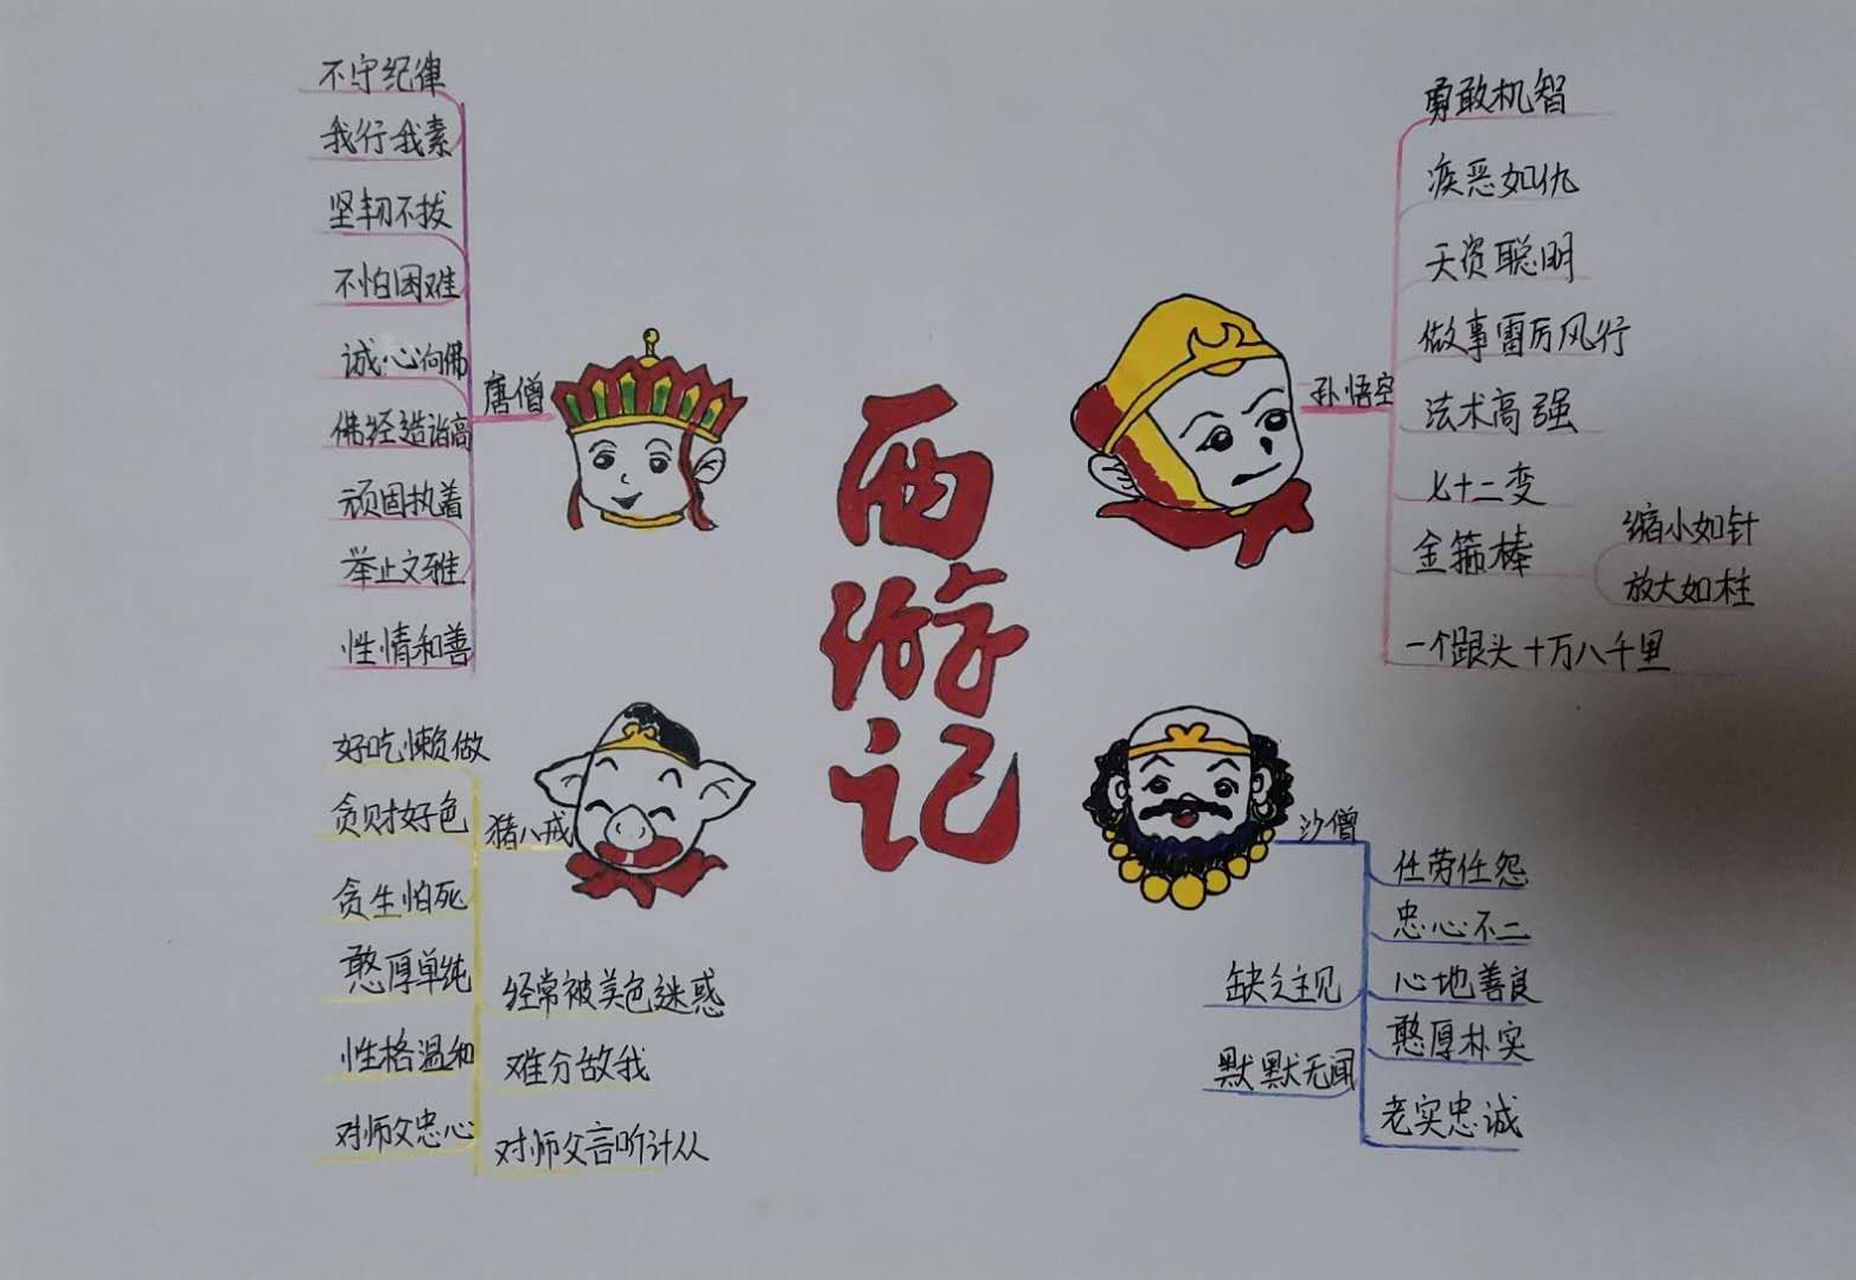 西游记
唐僧
不守纪律
我行我素
坚韧不拔
不怕困难
诚心向佛
佛经造诣高
顽固执着
举止文雅
性情和善
孙悟空
勇敢机智
疾恶如仇
天资聪明
做事雷厉风行
法术高强
七十二变
金箍棒
缩小如针
放大如柱
一个跟头十万八千里
猪八戒
好吃懒做
贪财好色
贪生怕死
憨厚单纯
性格温和
对师父忠心
经常被美色迷惑
难分敌我
对师父言听计从
沙僧
任劳任怨
忠心不二
心地善良
憨厚朴实
老实忠诚
缺乏主见
默默无闻